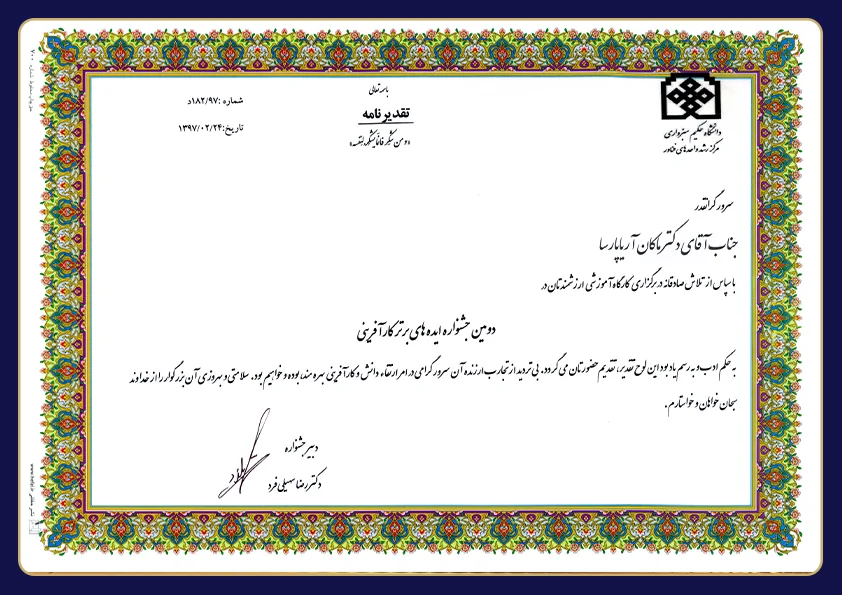 باسمه تعالی
تقدیرنامه
«و من شکر فانما یشکر لنفسه»
شماره :۱۸۲/۹۷د
تاریخ:۱۳۹۷/۰۲/۲۴
دانشگاه حکیم سبزواری
مرکز رشد واحدهای فناور
سرور گرانقدر
جناب آقای دکتر ماکان آریاپارسا
با سپاس از تلاش صادقانه در برگزاری کارگاه آموزشی ارزشمندتان در
دومین جشنواره ایده های برتر کارآفرینی
به حکم ادب و به رسم یادبود این لوح تقدیر، تقدیم حضورتان می گردد. بی تردید از تجارب ارزنده آن سرور گرامی در امر ارتقاء دانش و کارآفرینی بهره مند، بوده و خواهیم بود. سلامتی و بهروزی آن بزرگوار را از خداوند
سبحان خواهان و خواستارم.
دبیر جشنواره
دکتر رضا سهیلی فرد